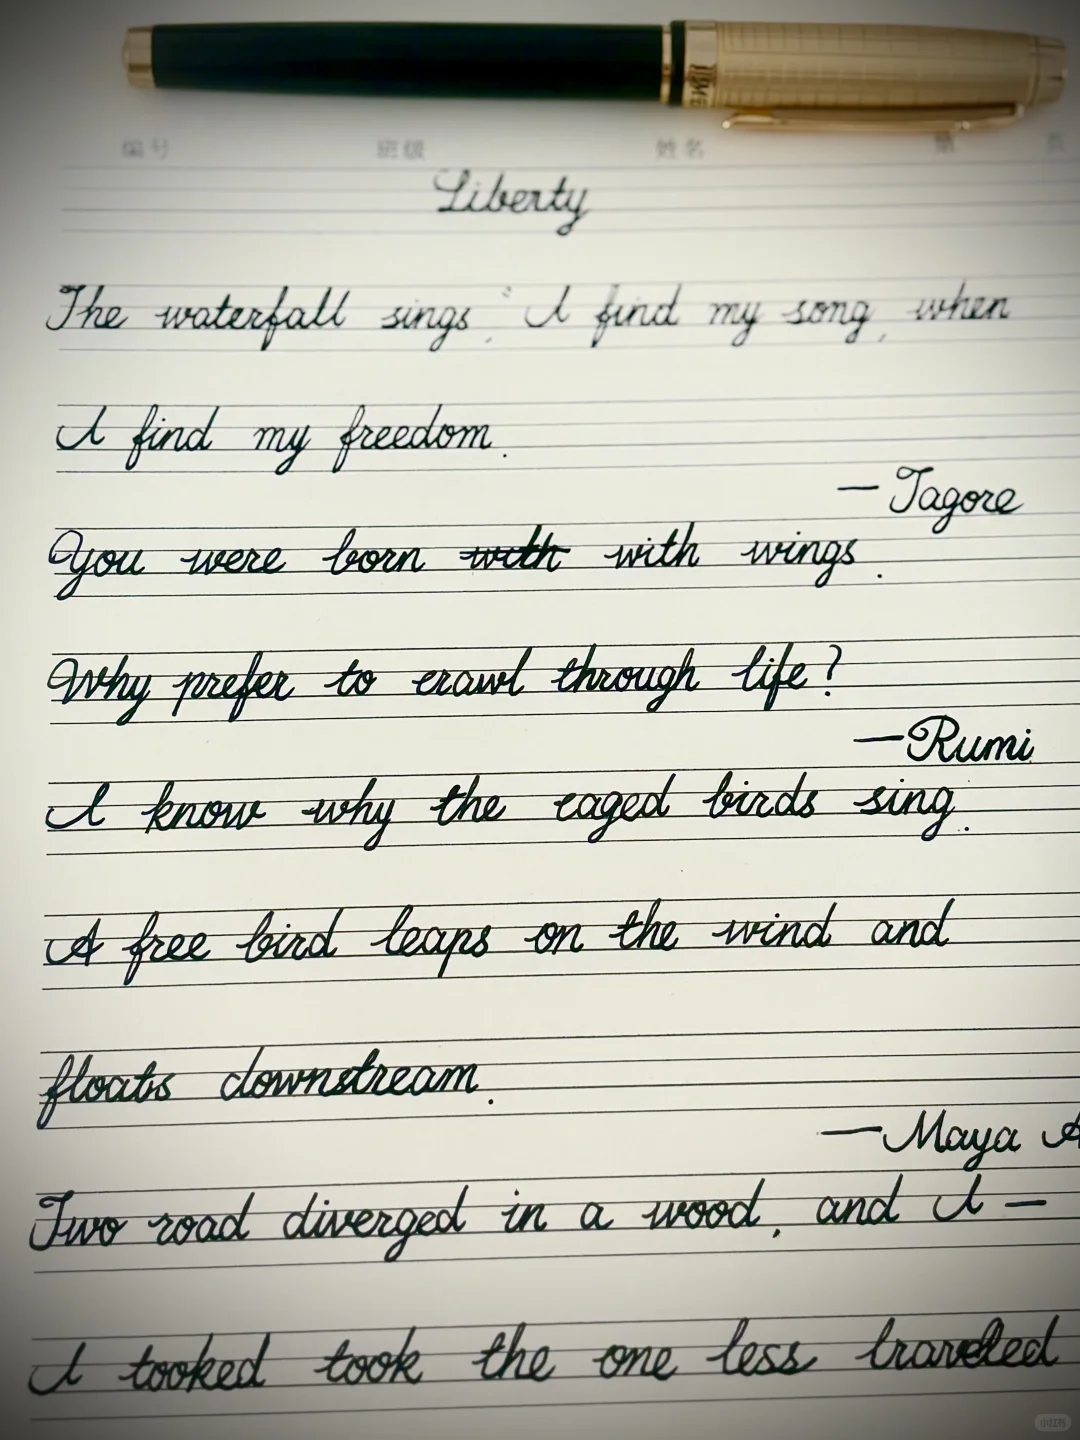 编号 班级 姓名 第 页
Liberty
The waterfall sings, "I find my song, when
I find my freedom.
— Tagore
You were born with with wings.
Why prefer to crawl through life?
—Rumi
I know why the caged birds sing.
A free bird leaps on the wind and
floats downstream.
—Maya A
Two road diverged in a wood, and I —
I tooked took the one less traveled
小红书